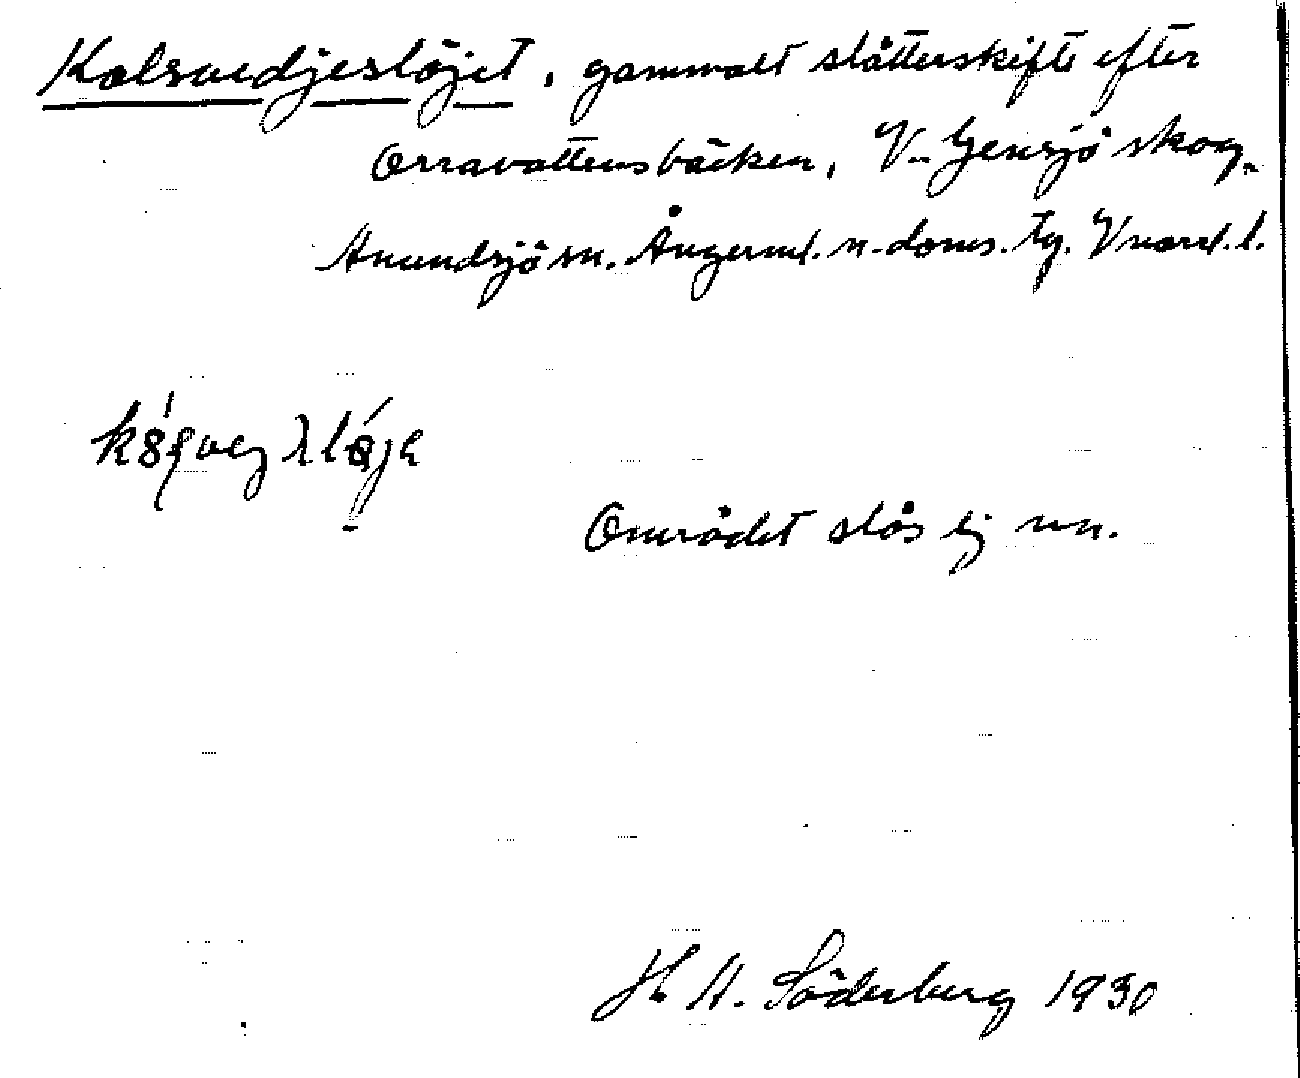 Kolsvedjeslöjet, gammalt slåtterskifte efter
Orravattensbäcken, V. Gensjö skog.
Anundsjö sn. Ångerml. n. doms. tg. Vnorrl. l.
Området slås ej nu.
H. A. Söderberg 1930